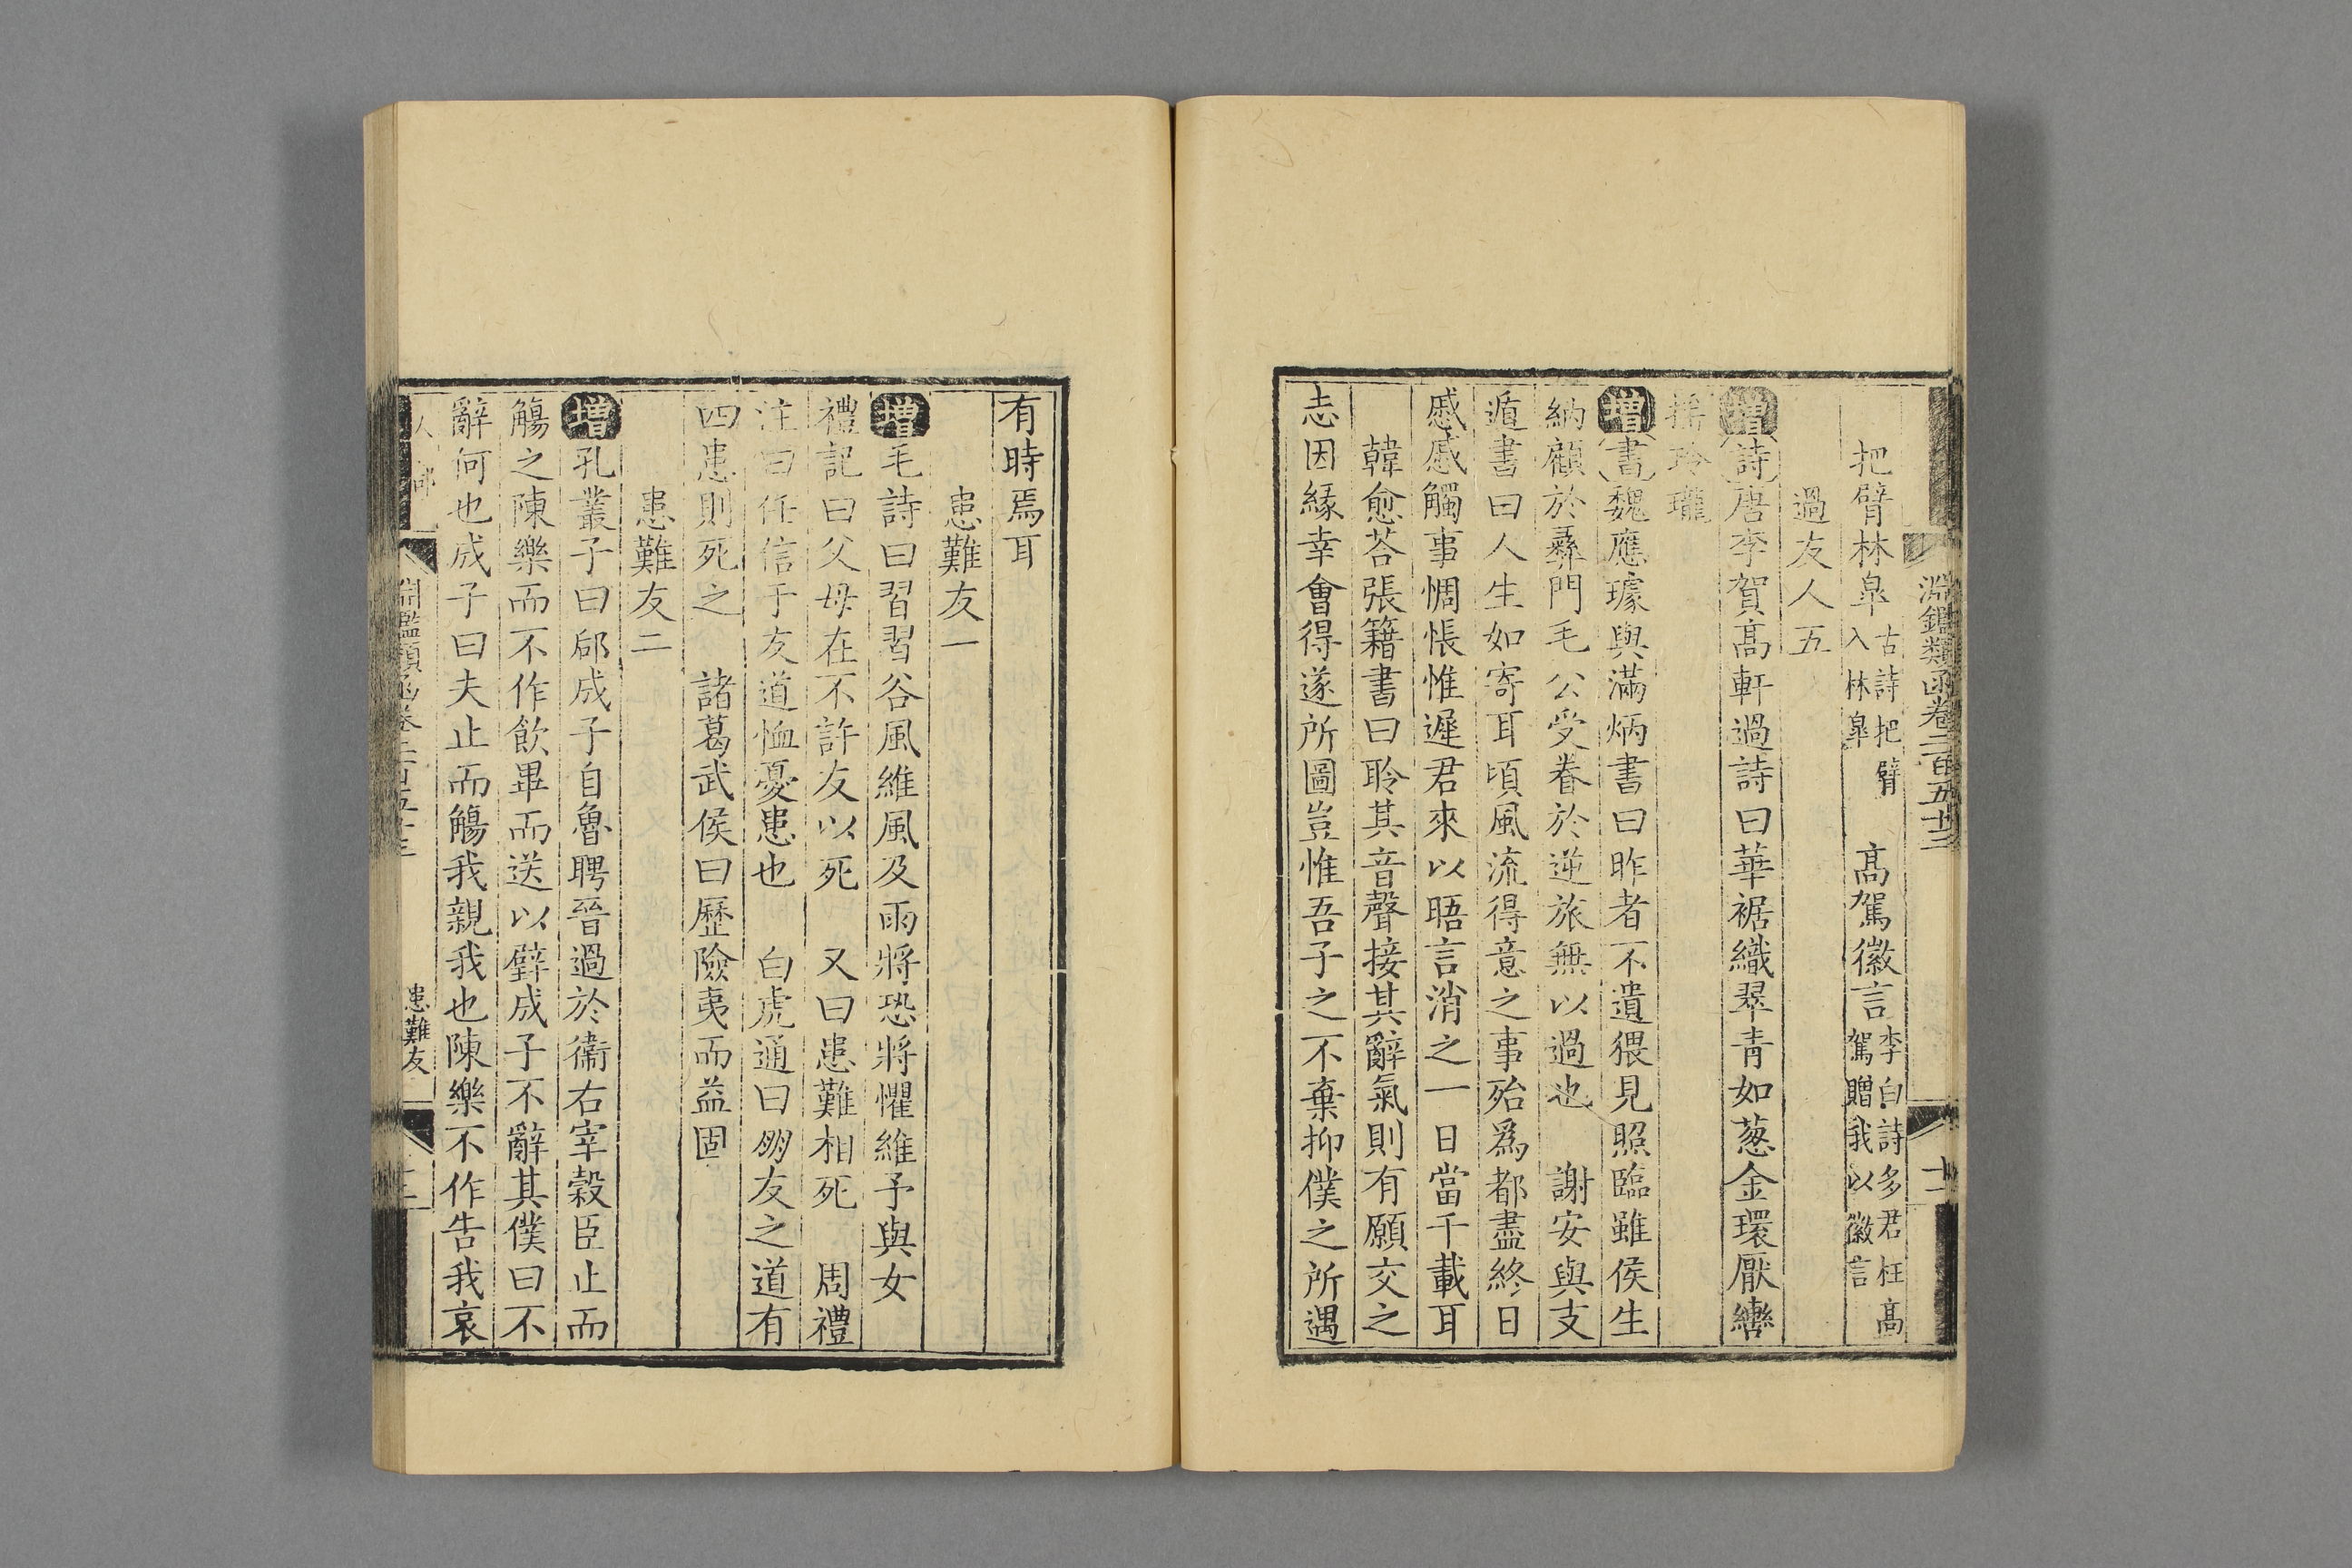 淵鑑類函卷二百五十三
十二
把臂林臯古詩把臂入林臯　高駕徽言李白詩多君枉高駕贈我以徽言
過友人五
增詩唐李賀高軒過詩曰華裾織翠青如葱金環壓轡
摇玲瓏
增書魏應璩與滿炳書曰昨者不遺猥見照臨雖侯生
納顧於彞門毛公受眷於逆旅無以過也　謝安與支
遁書曰人生如寄耳頃風流得意之事殆爲都盡終日
慼慼觸事惆悵惟遲君來以晤言消之一日當千載耳
韓愈荅張籍書曰聆其音聲接其辭氣則有願交之
志因緣幸會得遂所圖豈惟吾子之不棄抑僕之所遇
有時焉耳
患難友一
增毛詩曰習習谷風維風及雨將恐將懼維予與女
禮記曰父母在不許友以死　又曰患難相死　周禮
注曰任信于友道恤憂患也　白虎通曰朋友之道有
四患則死之　諸葛武侯曰歷險夷而益固
患難友二
增孔叢子曰郈成子自魯聘晉過於衞右宰穀臣止而
觴之陳樂而不作飲畢而送以璧成子不辭其僕曰不
辭何也成子曰夫止而觴我親我也陳樂不作告我哀
人部
淵鑑類函卷二百五十三
患難友